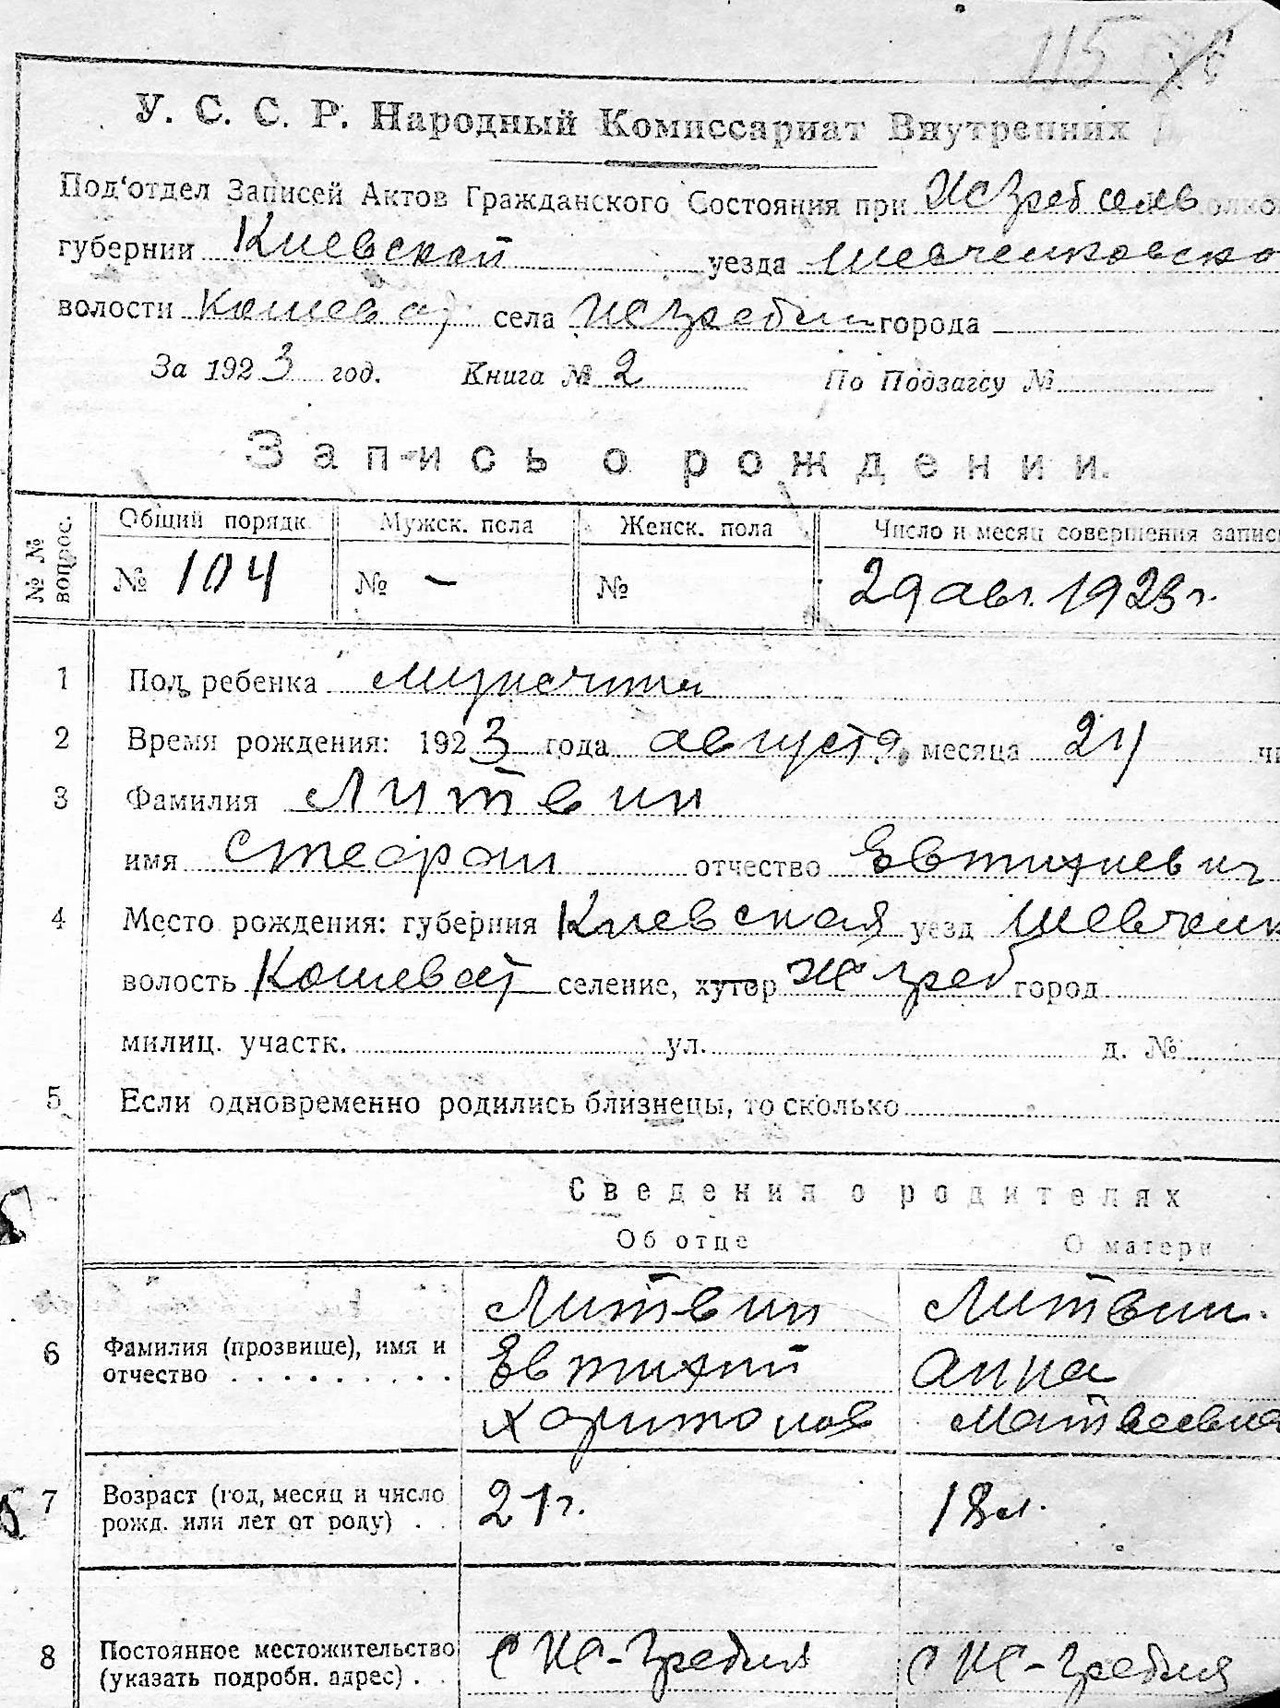 115
У. С. С. Р. Народный Комиссариат Внутренних Д
Под'отдел Записей Актов Гражданского Состояния при
губернии Киевской уезда Шевченковско
волости Кошеват села города
За 1923 год. Книга № 2 По Подзагсу №
Запись о рождении.
№ № вопрос. Общий порядк. Мужск. пола Женск. пола Число и месяц совершения запис
№ 104 № — № 29 авг. 1923 г.
1 Пол ребенка мужчина
2 Время рождения: 1923 года августа месяца 24 чи
3 Фамилия Литвин
имя Стефан отчество Евтихиевич
4 Место рождения: губерния Киевская уезд Шевченк
волость Кошеват селение, хутор город
милиц. участк. ул. д. №
5 Если одновременно родились близнецы, то сколько
Сведения о родителях
Об отце О матери
Литвин Литвин.
6 Фамилия (прозвище), имя и Евтихий Анна
отчество Харитонов Матвеевна
7 Возраст (год, месяц и число 21 г. 18 л.
рожд. или лет от роду)
8 Постоянное местожительство
(указать подробн. адрес)